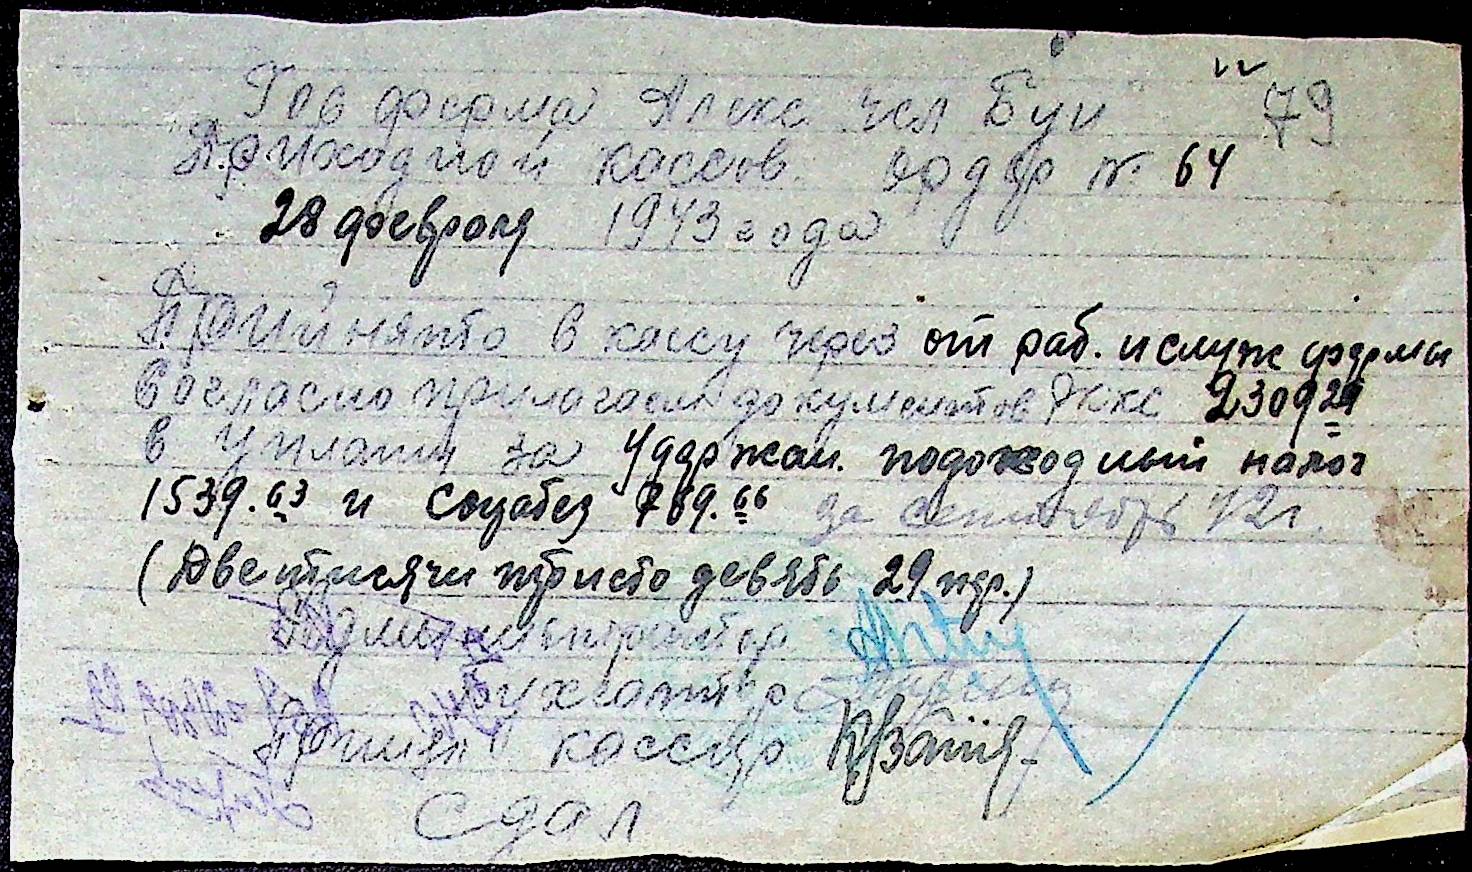 79
Гос ферма Алекс чел Буи
Приходной кассов. ордер № 64
28 февраля 1943 года
Прийнято в кассу через от раб. и служ фермы
Согласно прилагаем документов Ркке 2309 29
в уплату за удержан. подоходный налог
1539.63 и 769.66 за сентябрь 42 г.
(Две тысячи тристо девять 29 кр.)
Администратор
Бухгалтер
Принял кассир
Сдал